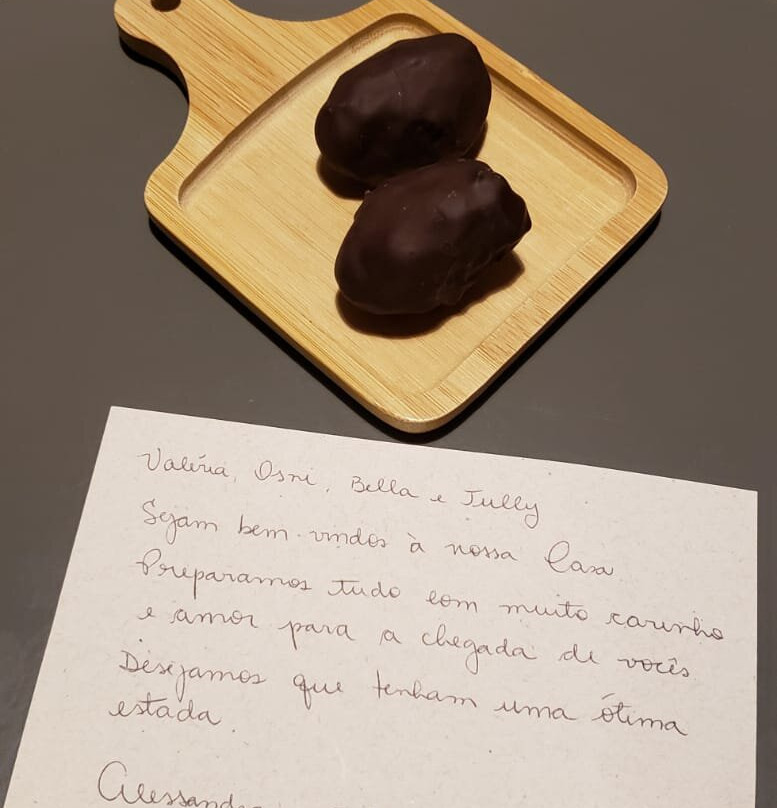 Valéria, Osni, Bella e Jully
Sejam bem-vindos à nossa Casa
Preparamos tudo com muito carinho
e amor para a chegada de vocês
Desejamos que tenham uma ótima
estada.